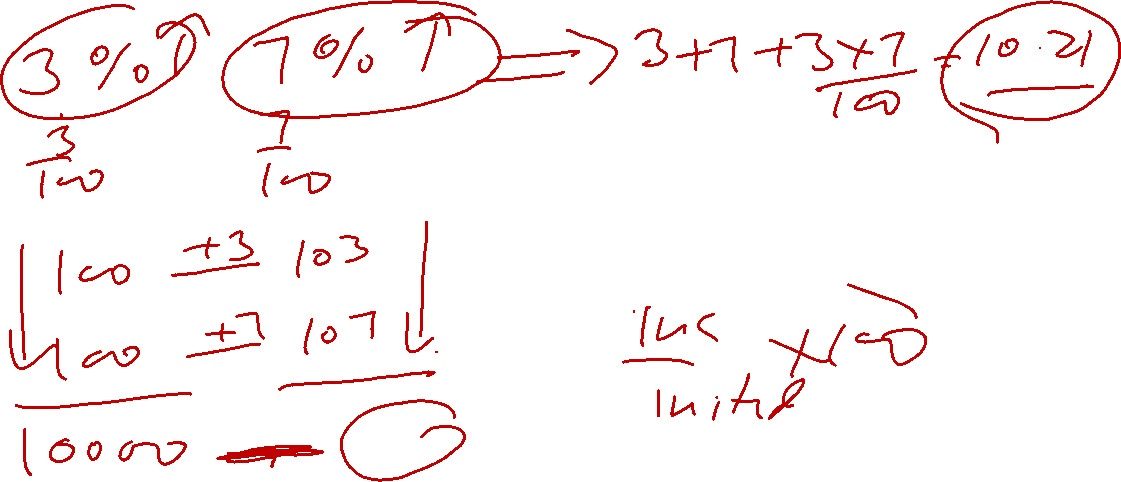 3%↑ 7%↑ ⇒ 3+7+3×7/100 = 10.21
3/100 7/100
100 +3 103
100 +7 107
10000
Inc/Initial ×100